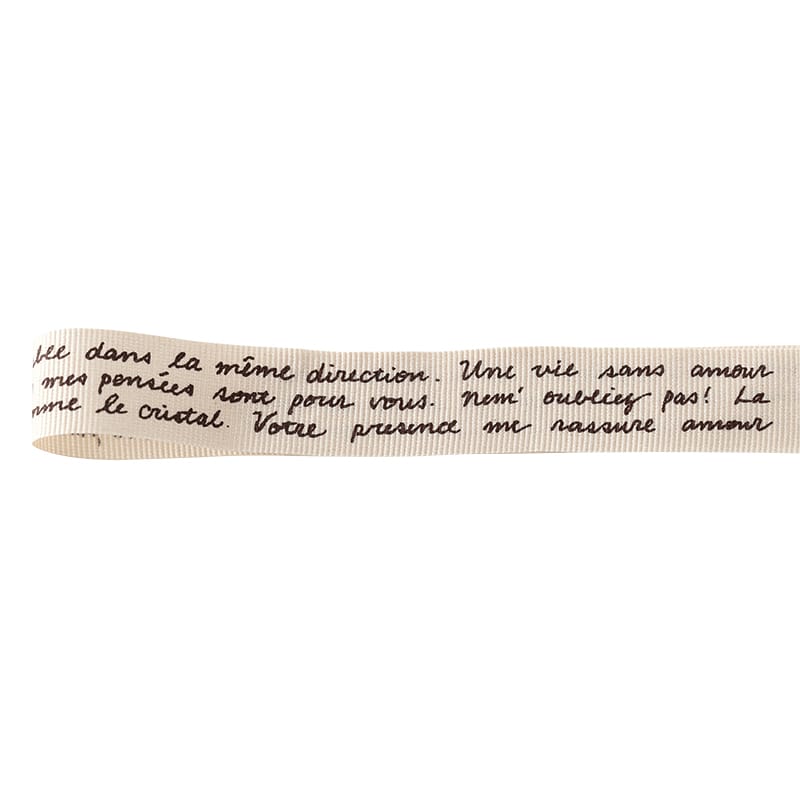 bee dans la même direction. Une vie sans amour
mes pensées sont pour vous. nem' oubliez pas! La
mme le cristal. Votre presence me rassure amour